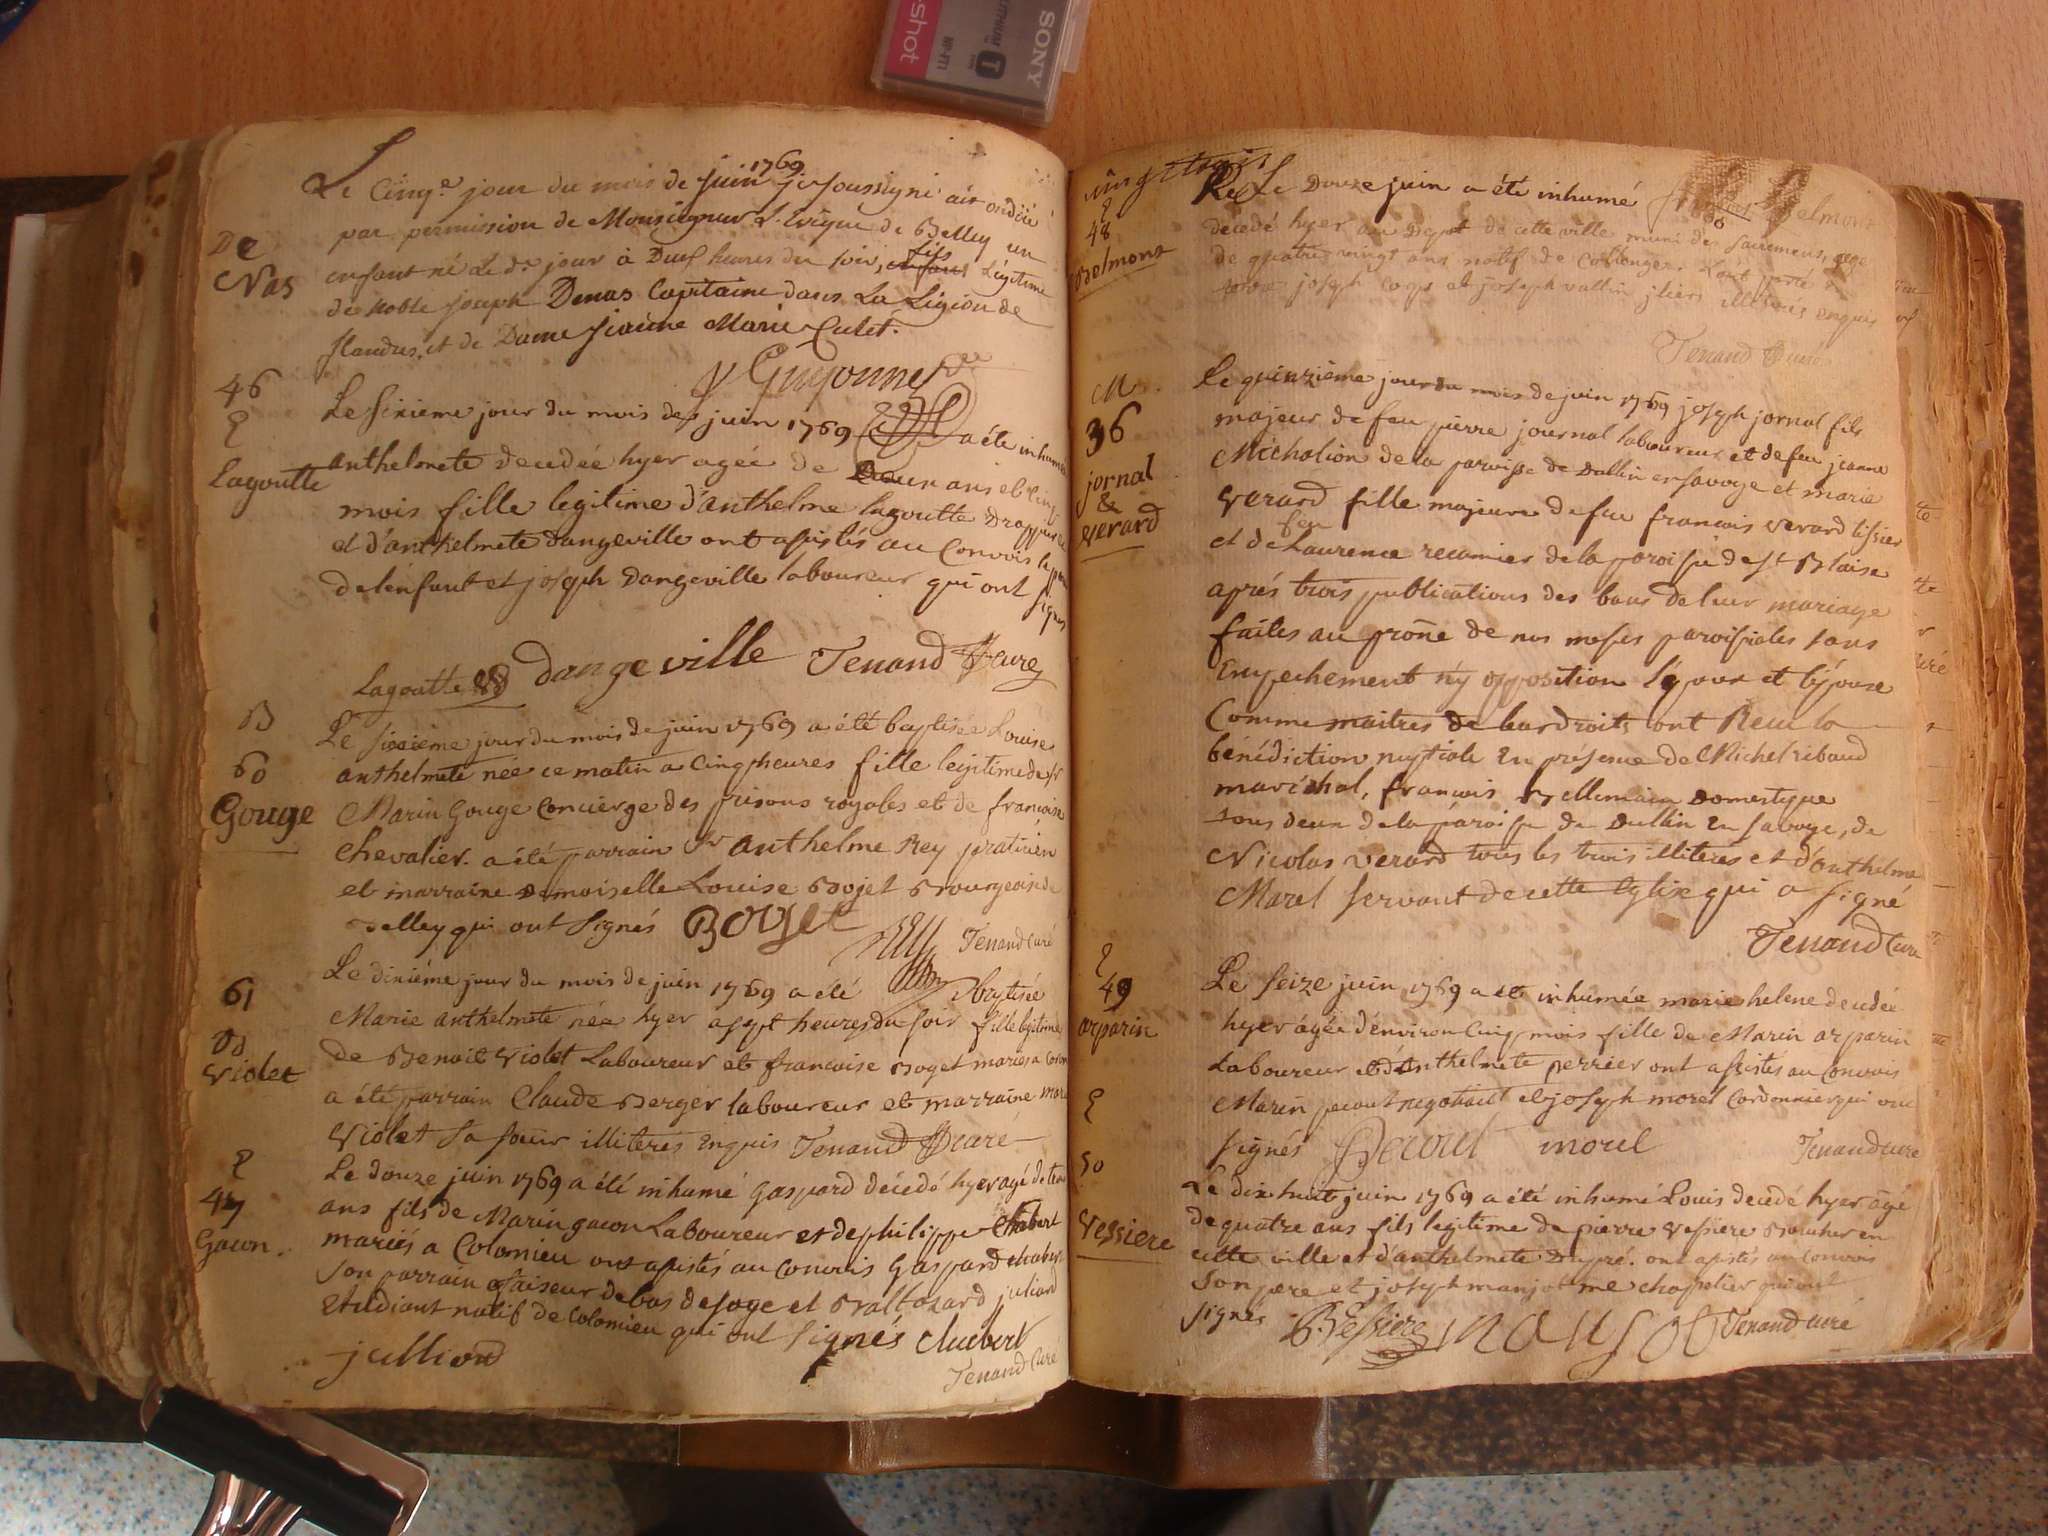 SONY
shot
T
NP-FT1
Le Cinq.e jour du mois de juin 1769 je soussigné ait ondoïé
par permission de Monseigneur L'Evêque de Belley un
De
Nas
enfant né Le d.t jour à Dusf heures du soir, fils Légitime
de Noble joseph Denas Capitaine dans La Légion de
flandres, et de Dame jeanne Marie Culet.
Guyonnet
46
E
Lagoutte
Le sixieme jour du mois de juin 1769 a été inhumée
anthelmete decedée hyer agée de Deux ans et cinq
mois fille legitime d'anthelme lagoutte Drappier
et d'anthelmete dangeville ont assistés au Convois le pere
de l'enfant et joseph dangeville laboureur qui ont signés
Lagoutte dangeville Tenand Curé
B
60
Gouge
Le sixieme jour du mois de juin 1769 a été baptisée Louise
anthelmete née ce matin a cinq heures fille legitime de Sr
Marin Gouge Concierge des prisons royales et de francoise
Chevalier. a été parrain Sr anthelme Rey praticien
et marraine demoiselle Louise Bojet Bourgeoise de
Belley qui ont signés BOYSET
Tenand Curé
61
B
Violet
Le dixiéme jour du mois de juin 1769 a été Sbaptisée
Marie anthelmete née hyer a sept heures du soir fille legitime
de Benoit Violet Laboureur et francoise Boget mariés a Colom
a été parrain Claude Berger laboureur et marraine marie
Violet Sa soeur illiteres Enquis Tenand Curé
E
47
Gacon
Le douze juin 1769 a été inhumé Gaspard décédé hyer agé de
ans fils de Marin gacon Laboureur et de philippe Chabert
mariés a Colomieu ont assistés au Convois Gaspard Chabert
Son parrain faiseur de bas de soye et Baltazard julian
Etudiant natif de Colomieu qui ont signés Chabert
julliand
Tenand Curé
vingt trois
E
48
Belmont
Le Douze juin a été inhumé Belmont
décédé hyer au Depot de cette ville muni des sacremens, age
de quatre vingt ans natif de Collonges. L'ont porté en
terre joseph Cogs et joseph vallin illiterés enquis
Tenand Curé
M
36
jornal
&
verard
Le quinzieme jour du mois de juin 1769 joseph jornal fils
majeur de feu pierre journal laboureur et de feu jeanne
Michalion de la paroisse de Dullin en savoye et marie
Verard fille majeure de feu francois verard tissier
et de feu Laurence recamier de la paroisse de St Blaise
aprés trois publications des bans de leur mariage
faites au prône de nos messes paroissiales sans
Empechement ny opposition l'epoux et l'épouse
Comme maitres de leurs droits ont Recu la
bénédiction nuptiale En présence de Michel ribaud
maréchal, francois Vellemain Domestique
tous deux de la paroisse de Dullin En savoye, de
Nicolas verard tous les trois illiterés et d'anthelme
Marel servant de cette Eglise qui a signé
Tenand Curé
E
49
arparin
Le seize juin 1769 a été inhumée marie helene decedée
hyer âgée d'environ cinq mois fille de Marin arparin
Laboureur et d'Anthelmete perrier ont assistés au Convois
Marin pecout negotiant et joseph morel Cordonnier qui ont
signés Pecout morel Tenand curé
E
50
Vessiere
Le dix huit juin 1769 a été inhumé Louis decedé hyer âgé
de quatre ans fils legitime de pierre vessiere Boucher en
cette ville et d'anthelmete Dupré. ont assistés au Convois
Son pere et joseph manjot me chapelier qui ont
signés BEssiere manjot Tenand curé